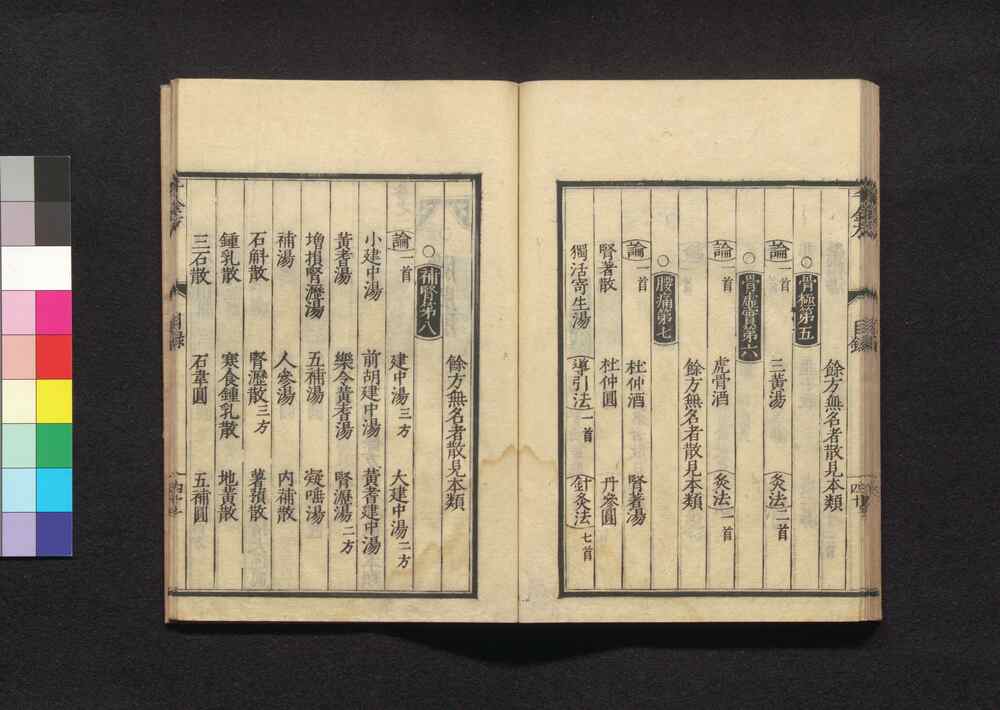 餘方無名者散見本類
○骨極第五
論一首 三黃湯 灸法二首
○骨虛實第六
論一首 虎骨酒 灸法一首
餘方無名者散見本類
○腰痛第七
論一首 杜仲酒 腎著湯
腎著散 杜仲圓 丹參圓
獨活寄生湯 導引法一首 針灸法七首
餘方無名者散見本類
○補腎第八
論一首 建中湯三方 大建中湯二方
小建中湯 前胡建中湯 黃耆建中湯
黃耆湯 樂令黃耆湯 腎瀝湯二方
增損腎瀝湯 五補湯 凝唾湯
補湯 人參湯 內補散
石斛散 腎瀝散三方 薯蕷散
鍾乳散 寒食鍾乳散 地黃散
三石散 石韋圓 五補圓
目錄